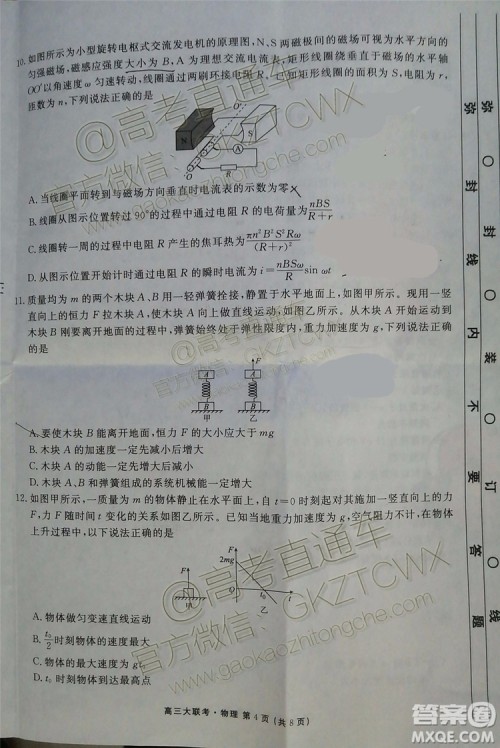 10.如图所示为小型旋转电枢式交流发电机的原理图,N、S两磁极间的磁场可视为水平方向的
匀强磁场,磁感应强度大小为B,A为理想交流电流表,矩形线圈绕垂直于磁场的水平轴
OO′以角速度ω匀速转动,线圈通过两刷环接电阻R。已知矩形线圈的面积为S,电阻为r,
匝数为n,下列说法正确的是
O′
N
S
A
O
R
A.当线圈平面转到与磁场方向垂直时电流表的示数为零
B.线圈从图示位置转过90°的过程中通过电阻R的电荷量为nBS/(R+r)
C.线圈转一周的过程中电阻R产生的焦耳热为πn²B²S²Rω/(R+r)²
D.从图示位置开始计时通过电阻R的瞬时电流为i=nBSω/R sin ωt
11.质量均为m的两个木块A、B用一轻弹簧拴接,静置于水平地面上,如图甲所示。现用一竖
直向上的恒力F拉木块A,使木块A由静止向上做直线运动,如图乙所示。从木块A开始运动到
木块B刚要离开地面的过程中,弹簧始终处于弹性限度内,重力加速度为g,下列说法正确
的是
F
A
A
B
B
甲
乙
A.要使木块B能离开地面,恒力F的大小应大于mg
B.木块A的加速度一定先减小后增大
C.木块A的动能一定先增大后减小
D.木块A和弹簧组成的系统机械能一定增大
12.如图甲所示,一质量为m的物体静止在水平面上,自t=0时刻起对其施加一竖直向上的力
F,力F随时间t变化的关系如图乙所示。已知当地重力加速度为g,空气阻力不计,在物体
上升过程中,以下说法正确的是
F
2mg
F
O
t₀
t
甲
乙
A.物体做匀变速直线运动
B.t₀/2时刻物体的速度最大
C.物体的最大速度为gt₀
D.t₀时刻物体到达最高点
高三大联考·物理 第4页(共8页)
弥
封
线
内
不
要
答
题
弥
封
线
装
订
线
@高考直通车
官方微信:GKZTCWX
www.gaokaozhitongche.com
@高考直通车
官方微信:GKZTCWX
www.gaokaozhitongche.com
答案圈
MXQE.COM